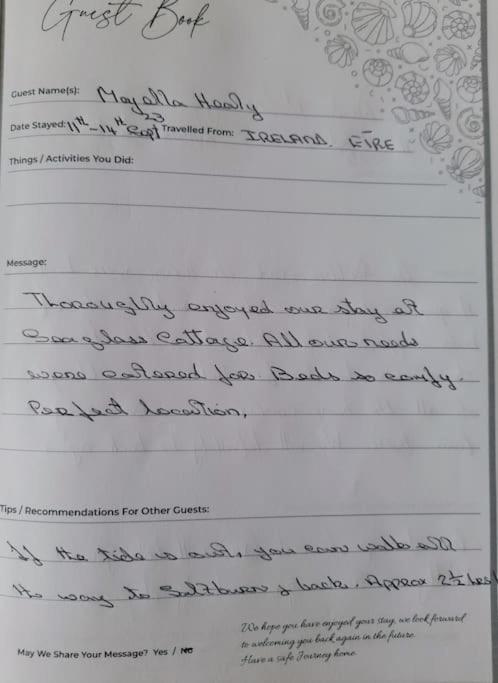 Guest Book
Guest Name(s): Majella Healy
Date Stayed: 11th - 14th Sept 23 Travelled From: IRELAND. EIRE
Things / Activities You Did:
Message:
Thoroughly enjoyed our stay at
Seaglass Cottage. All our needs
were catered for. Beds so comfy.
Perfect location.
Tips / Recommendations For Other Guests:
If the tide is out, you can walk all
the way to Saltburn & back. Approx 2½ hrs!
We hope you have enjoyed your stay, we look forward
to welcoming you back again in the future.
Have a safe Journey home.
May We Share Your Message? Yes / No